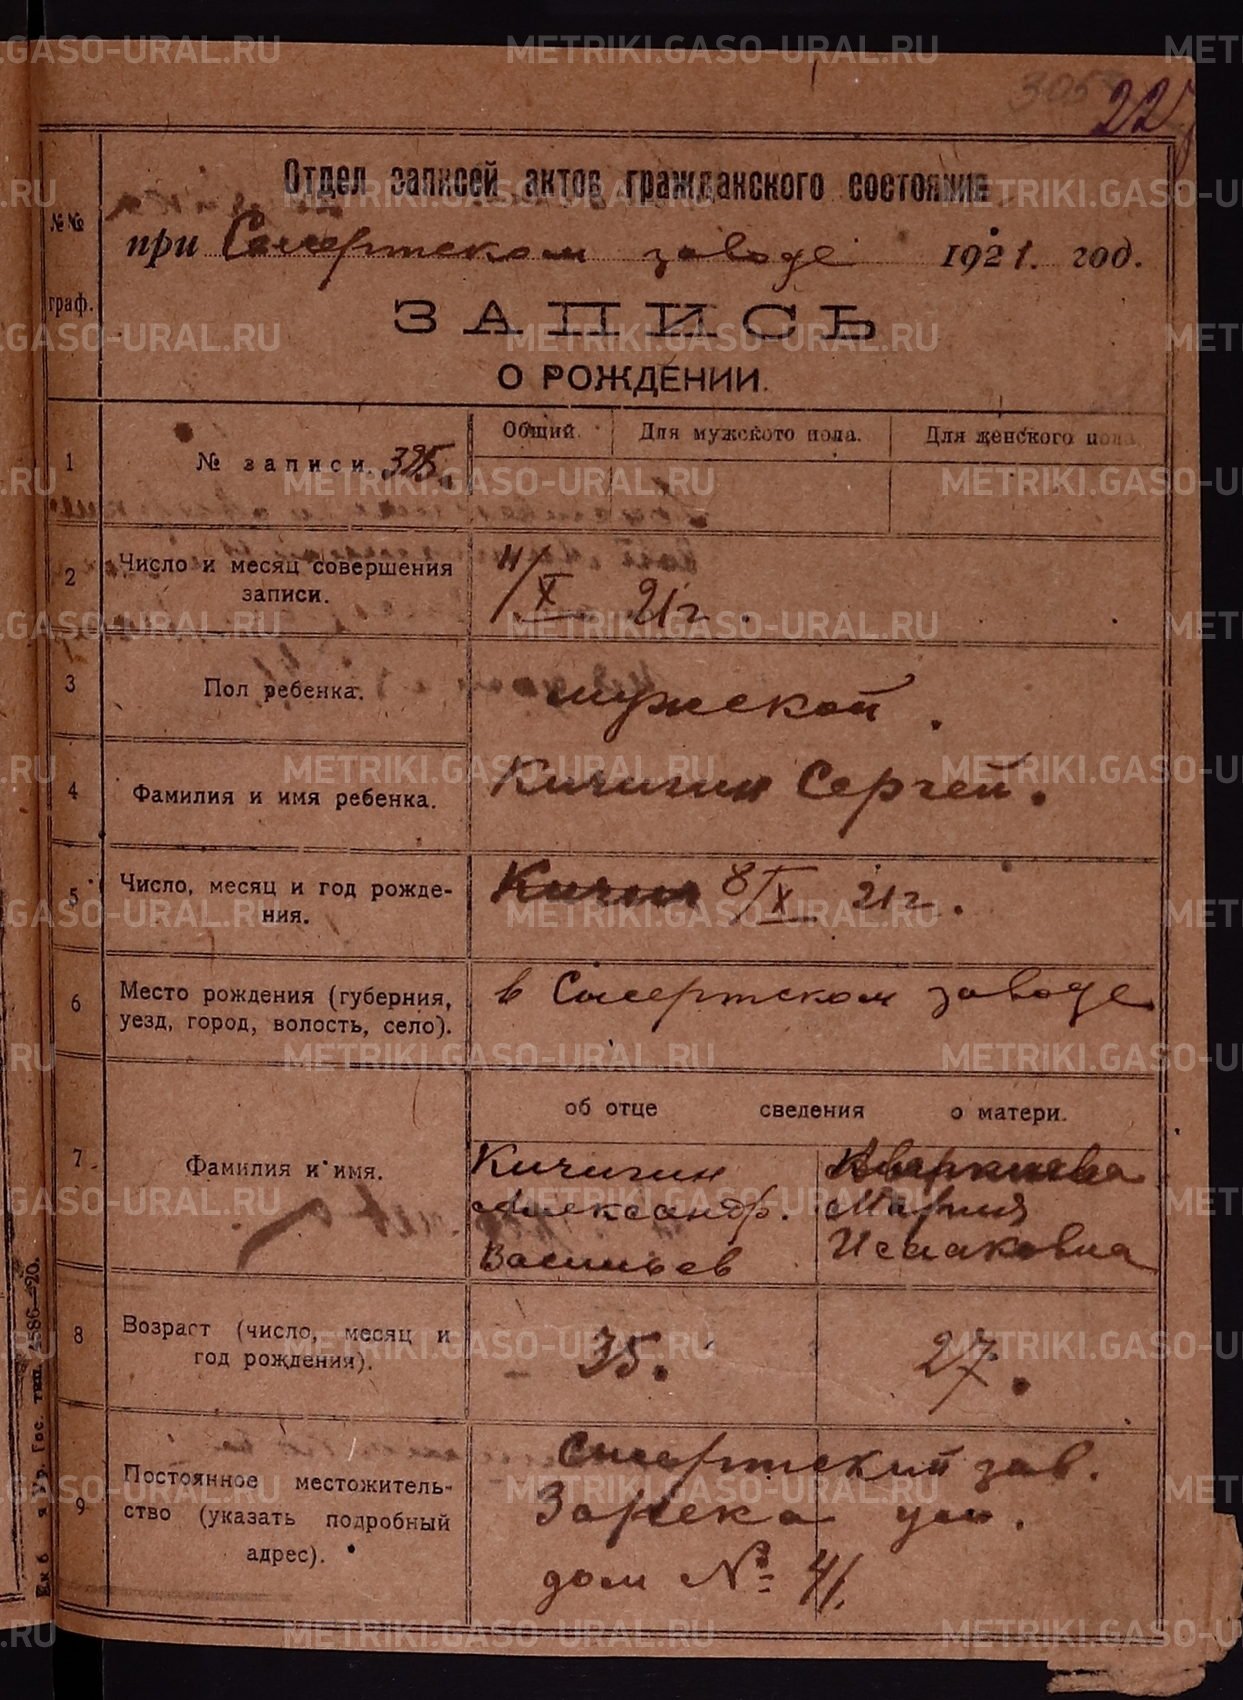 METRIKI.GASO-URAL.RU
22
Отдел записей актов гражданского состояния
№№ граф.
при Сысертском заводе 1921. год.
ЗАПИСЬ
О РОЖДЕНИИ.
1
№ записи. 325.
Общий. Для мужского пола. Для женского пола.
2
Число и месяц совершения
записи.
11/X 21 г.
3
Пол ребенка.
мужской.
4
Фамилия и имя ребенка.
Кичигин Сергей.
5
Число, месяц и год рожде-
ния.
8/X 21 г.
6
Место рождения (губерния,
уезд, город, волость, село).
в Сысертском заводе
об отце сведения о матери.
7
Фамилия и имя.
Кичигин
Александр.
Васильев
Мария
Исааковна
8
Возраст (число, месяц и
год рождения).
35.
27.
9
Постоянное местожитель-
ство (указать подробный
адрес).
Сысертский зав.
Зарека ул.
дом №